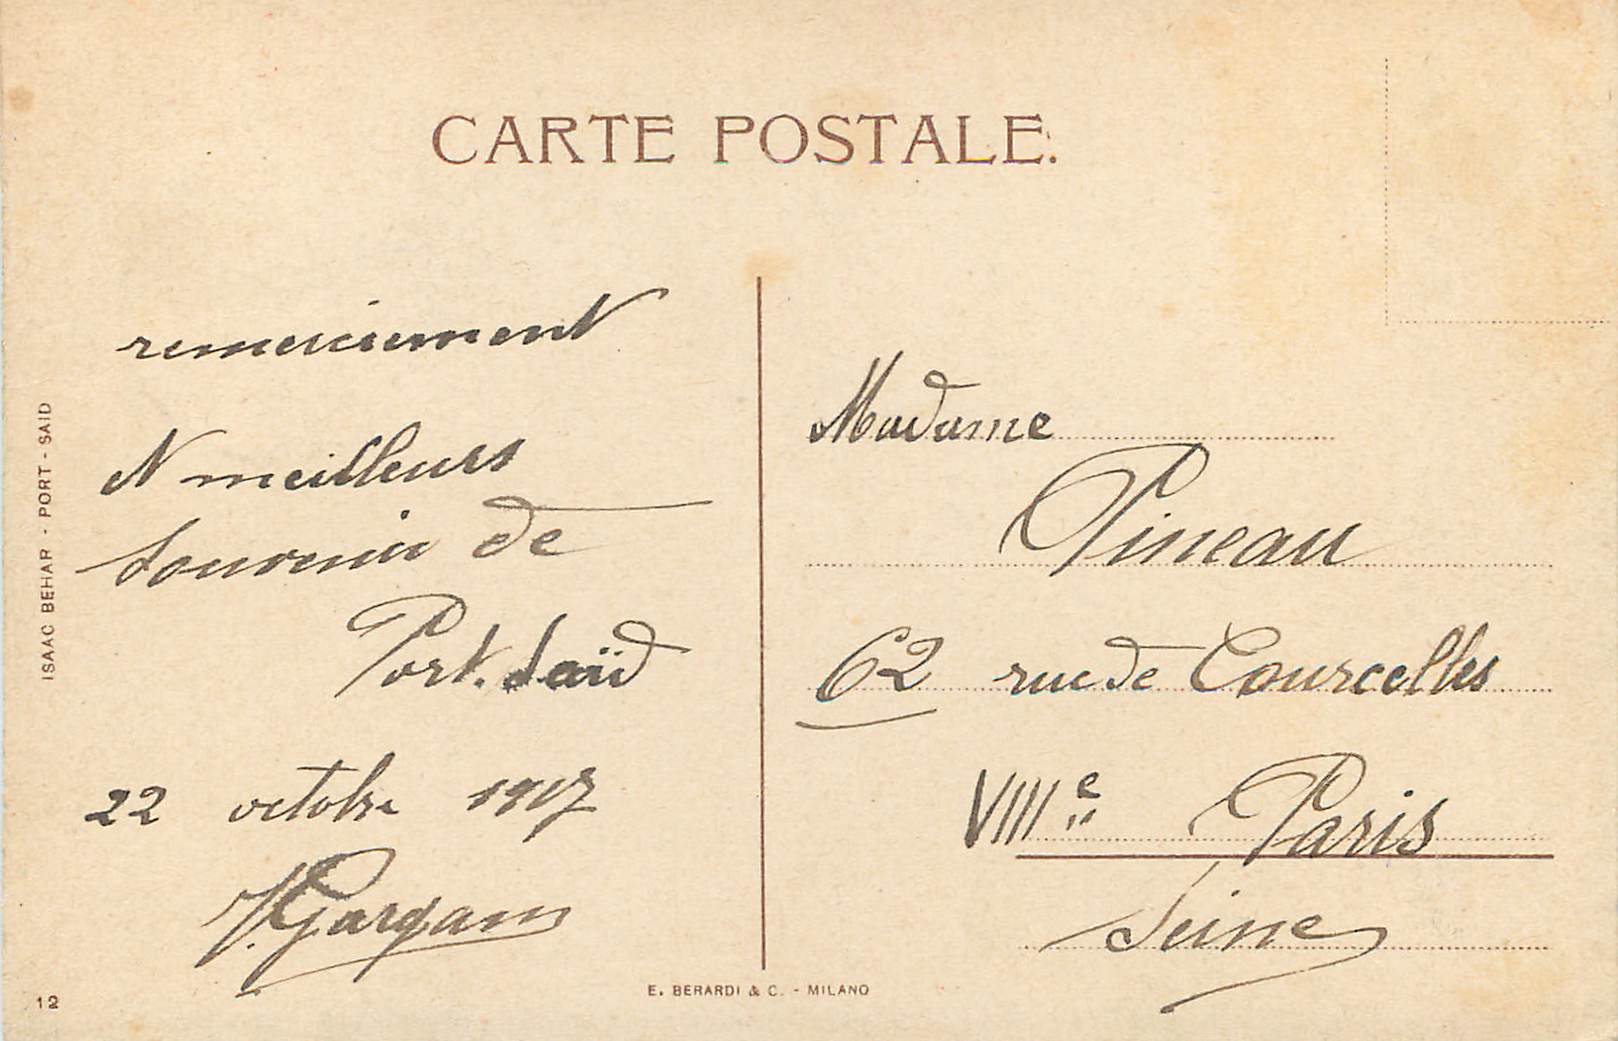 CARTE POSTALE.
remerciement
et meilleurs
souvenir de
Port. Saïd
22 octobre 1917
Madame
Pineau
62 rue de Courcelles
VIIIe Paris
Seine
ISAAC BEHAR - PORT-SAID
12
E. BERARDI & C. - MILANO